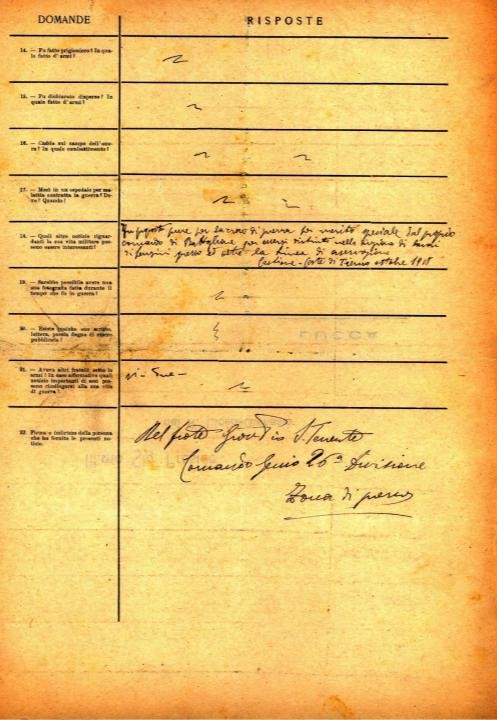 DOMANDE
RISPOSTE
14. — Fu fatto prigioniero? In qua-
le fatto d'armi?
15. — Fu dichiarato disperso? In
quale fatto d'armi?
16. — Cadde sul campo dell'ono-
re? In quale combattimento?
17. — Morì in un ospedale per ma-
lattia contratta in guerra? Do-
ve? Quando?
18. — Quali altre notizie riguar-
danti la sua vita militare pos-
sono essere interessanti?
Fu proposto pure per la croce di guerra per merito speciale dal proprio
comando di Battaglione, per essersi distinto nella di lavori
di difensivi presso ed oltre la linea di osservazione
ottobre 1918
19. — Sarebbe possibile avere una
sua fotografia fatta durante il
tempo che fu in guerra?
20. — Esiste qualche suo scritto,
lettera, poesia degna di essere
pubblicata?
21. — Aveva altri fratelli sotto le
armi? In caso affermativo quali
notizie importanti di essi pos-
sono riunirsi alla sua vita
di guerra?
si - due -
22. Firma e indirizzo della persona
che ha fornito le presenti no-
tizie.
S. Tenente
Comando Genio 26ª Divisione
Zona di guerra